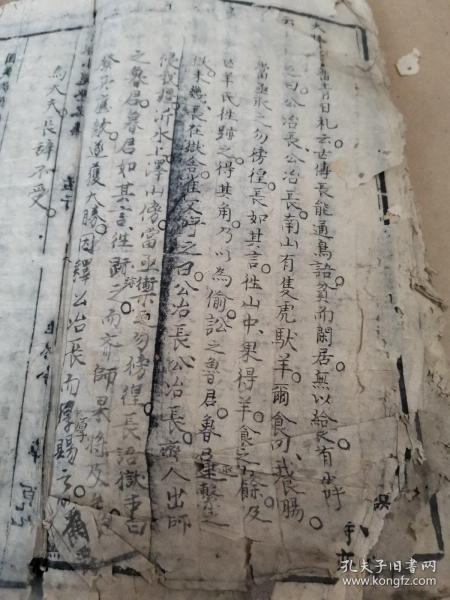 青曰札云古傳長能通鳥語貧而閑居無以給食有呼
之曰公冶長公冶長南山有隻虎馱羊爾食肉我食腸
當亟取之勿徬徨長如其言往山中果得羊食之有餘及
亡羊氏往跡之得其角乃以為偷訟之魯君魯逮繫之
獄未幾長在獄舍雀又呼之曰公冶長公冶長齊人出師
侵我疆沂水上澤山傍當亟禦之勿徬徨長語獄吏白
之魯君魯君如其言往跡之而齊師果將及
發兵應敵遂獲大勝因釋公冶長而厚賜之
為大夫長辭不受
孔夫子旧书网
www.kongfz.com